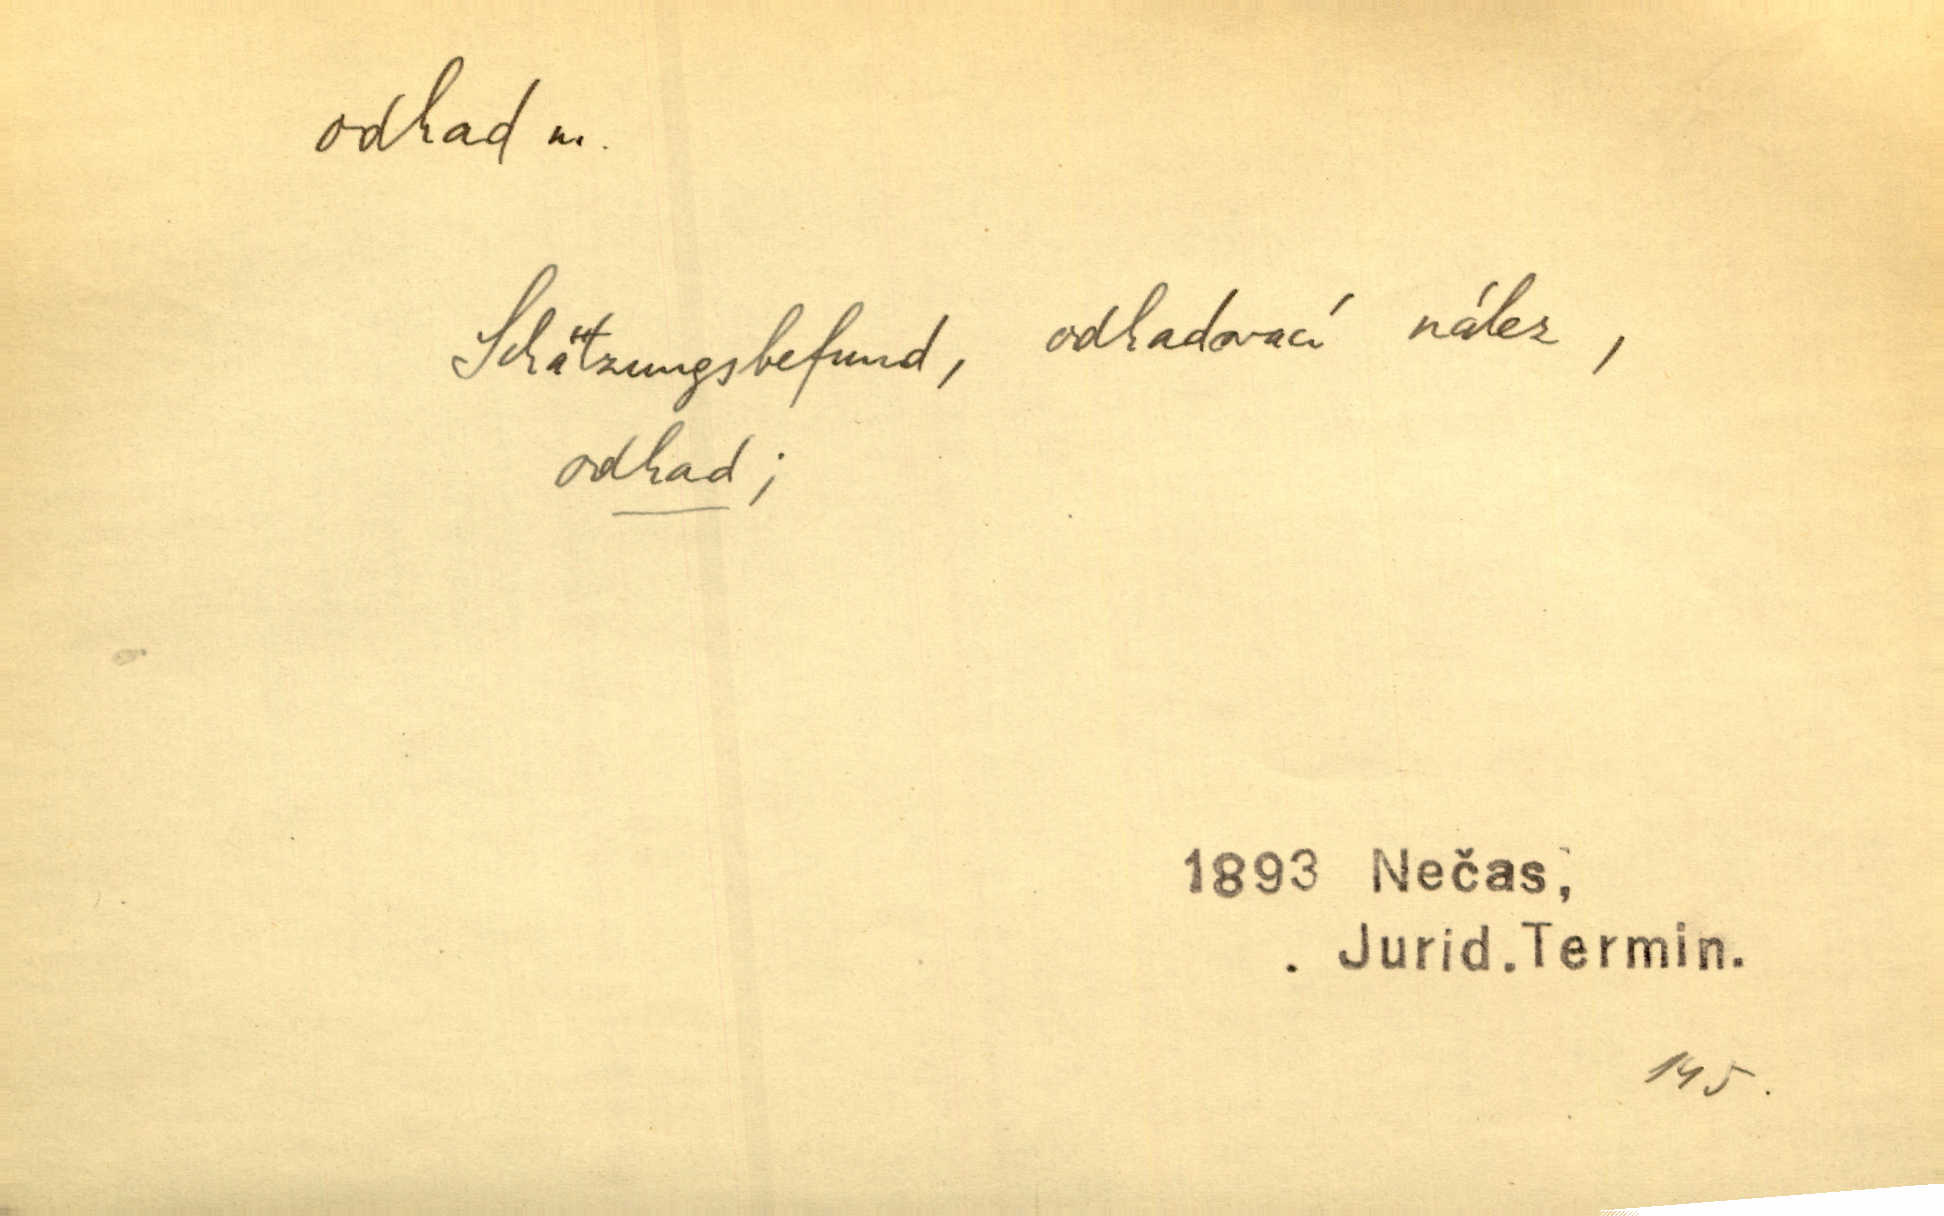 odhad m.
Schätzungsbefund, odhadovací nález,
odhad;
1893 Nečas,
. Jurid. Termin.
145.